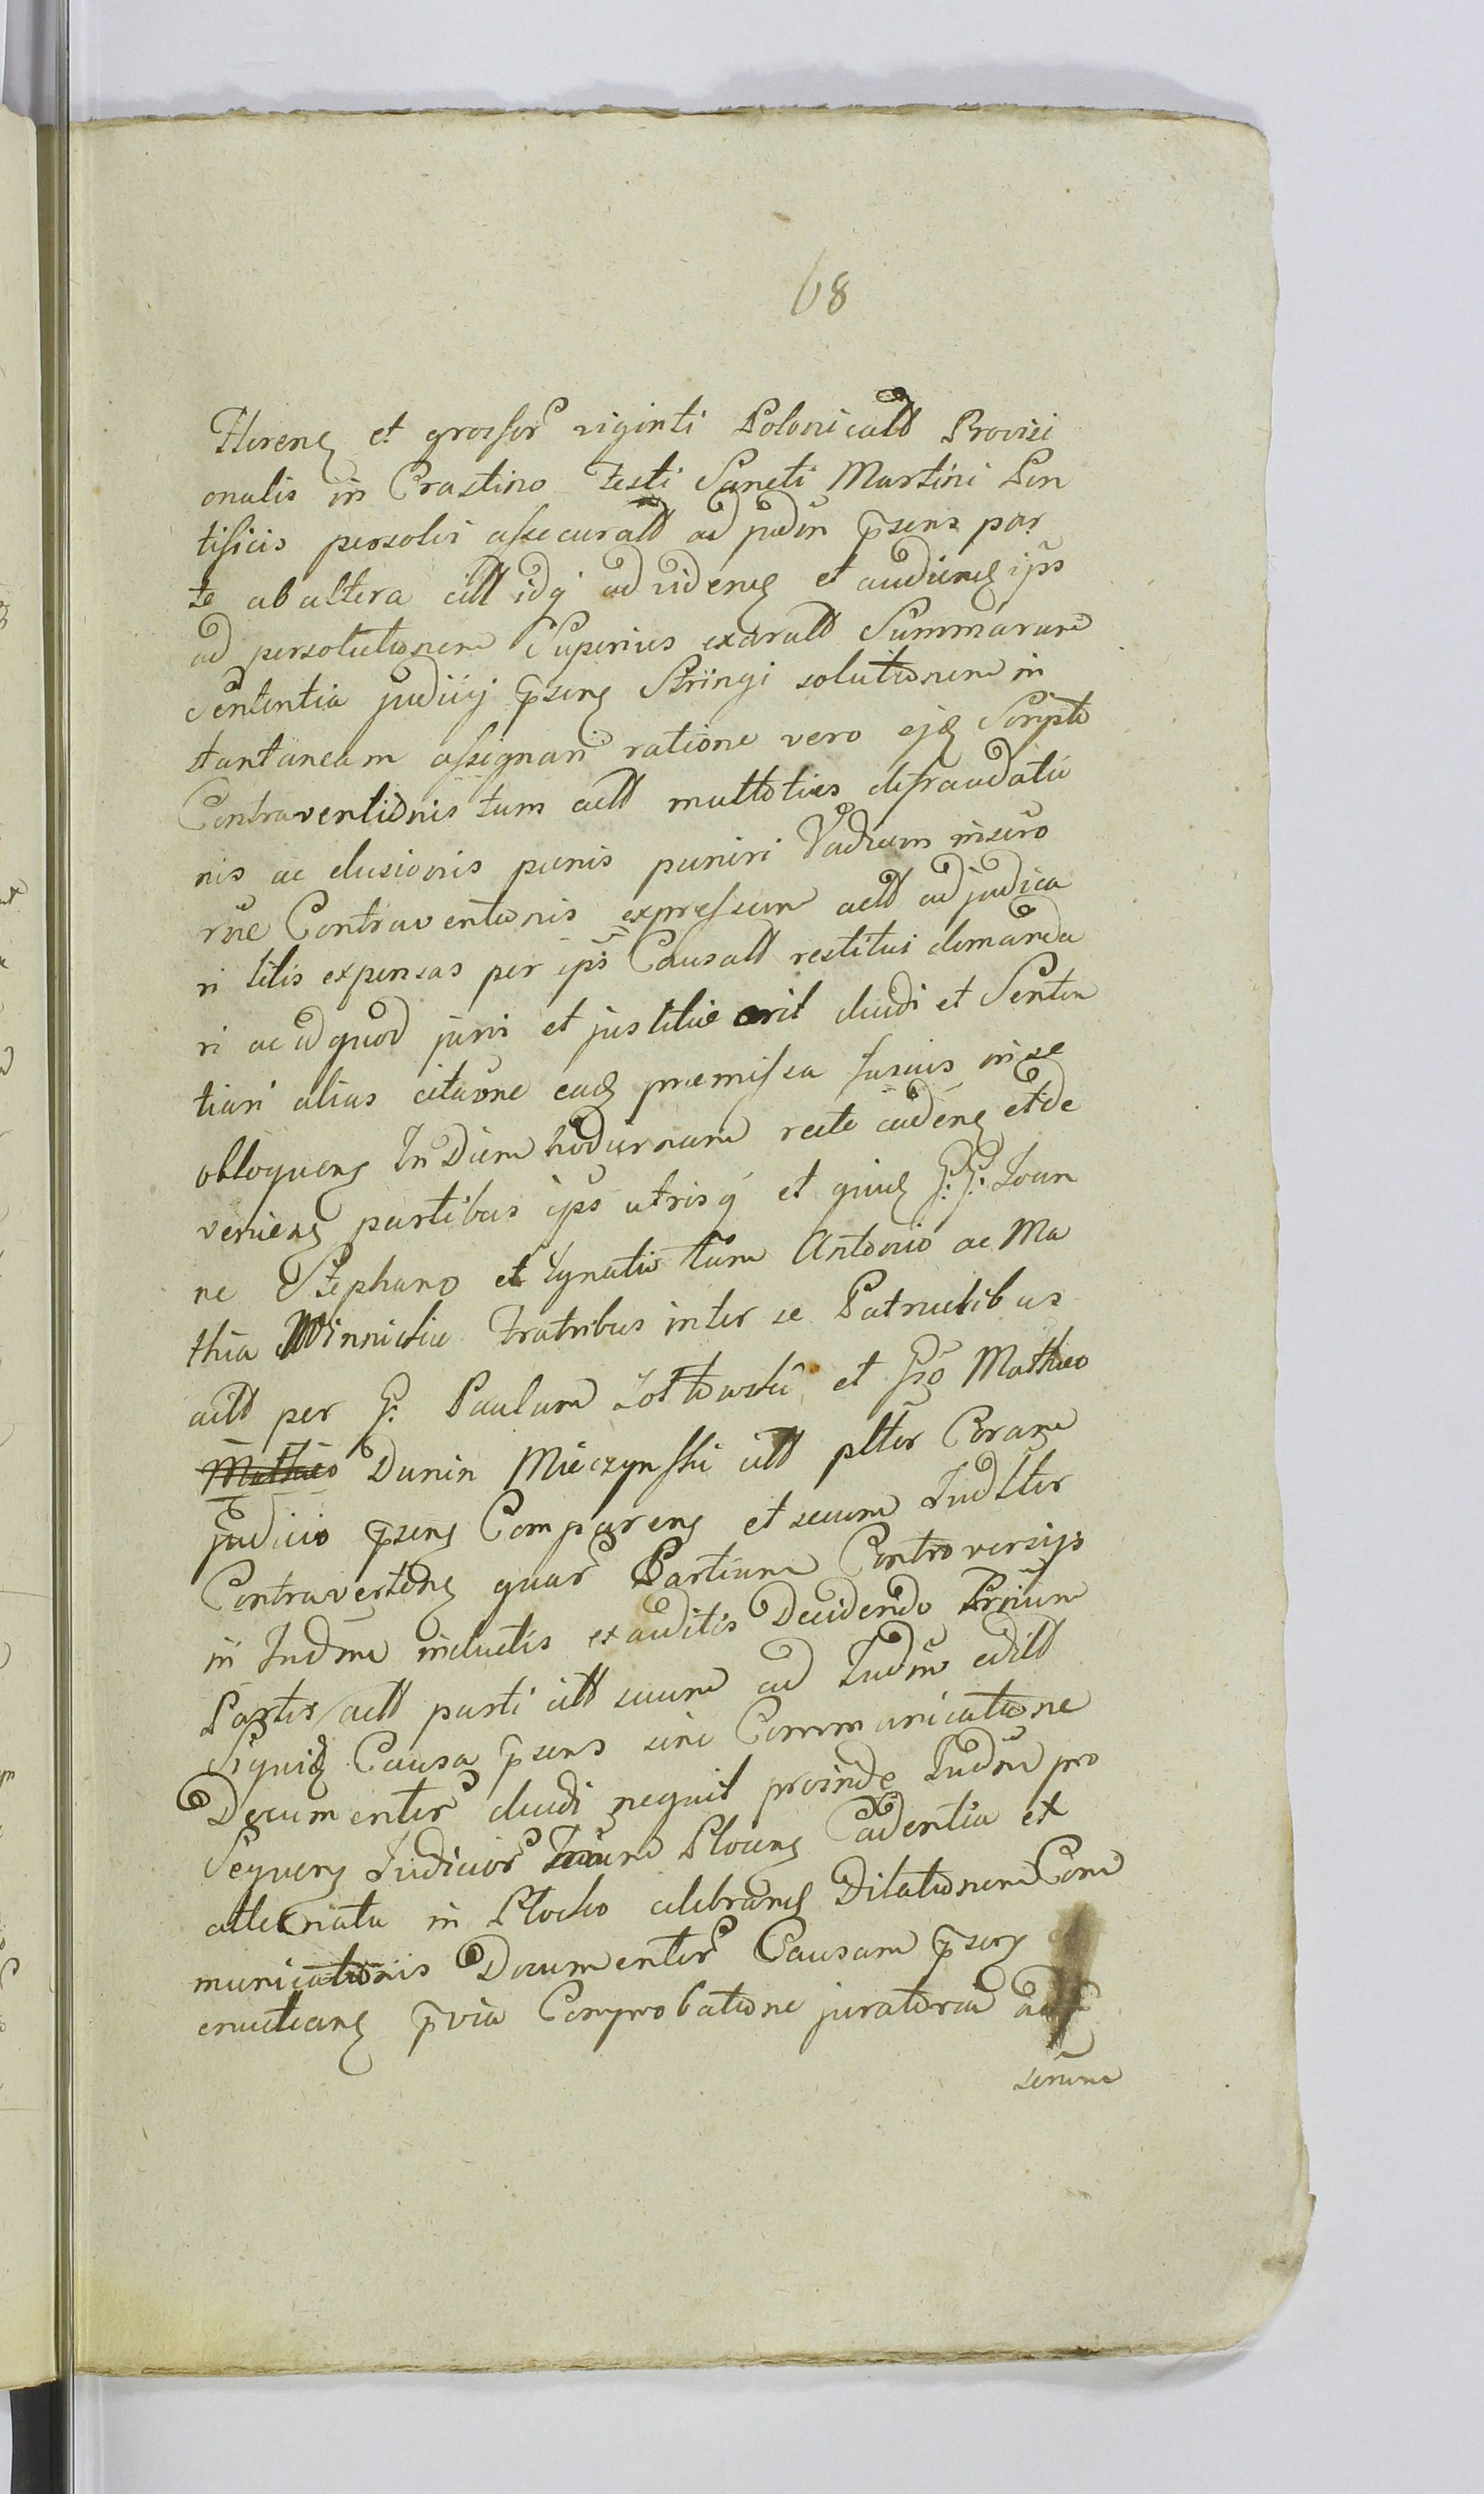 68
Floreng et grossor viginti Polonicall Provisi
onalis in Crastino Festi Sancti Martini Pon
tificis persolvi assecurall ad judm p̄sens par
te ab altera citt idq̨ ad videng et audieng ips
ad persolutionem Superius exarall Summarum
Sententia judiij p̄seng Stringi solutionem in
stantaneam assignari ratione vero ejq Scripto
Contraventionis tum actt multoties defraudatio
nis ac elusionis pœnis puniri Vadium inscrō
rūe Contraventionis expressum actt adjudica
ri litis expensas per ips Causall restitui demanda
ri ac id quod juris et justitiæ erit decidi et Senten
tiari alias citaōne eaq præmissa fusius in se
obloqueng In Diem hodiernam recte cadeng et de
venieng partibus ips utrisq̨ et quiq G: G: Joan
ne Stephano et Ignatio tum Antonio ac Ma
thia Winnickie Fratribus inter se Patruelibus
actt per G: Paulum Zołtowski et Gso Mathæo
Mathæo Dunin Mieczynski citt plter Coram
judicio p̄seng Compareng et secum Judlter
Contraverteng quar Partium Controversijs
in Judm inductis exauditis Decidendo Prium
Partis actt parti citt suum ad Judm edill
Siquiq Causa p̄sens sine Communicatione
Documentor decidi nequit proinde Judm pro
Sequeng Judicior Plocens Cadentia ex
alternata in Plocko celebrang Dilationem Com
municationis Documentor Causam p̄seng
enucleang p̄via Comprobatione juratoria